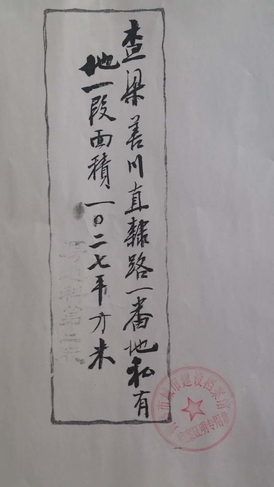 查梁善川直隸路一番地私有
地一段面積一〇二七平方米